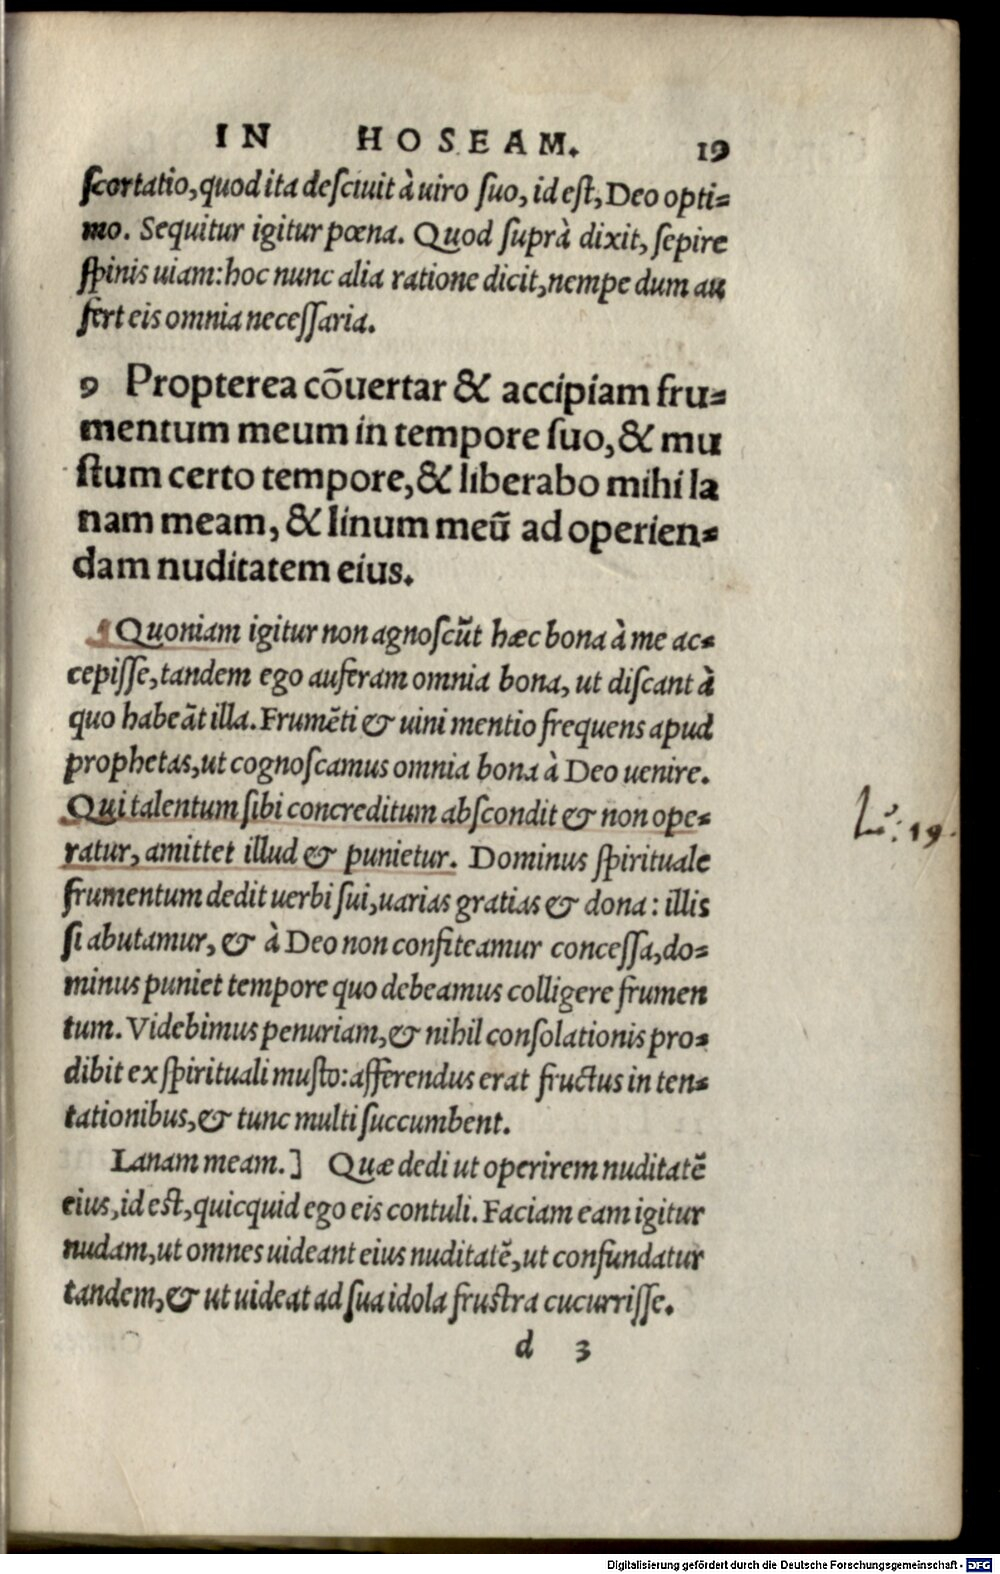 IN HOSEAM. 19
ſcortatio, quod ita deſciuit à uiro ſuo, id eſt, Deo opti-
mo. Sequitur igitur pœna. Quod ſuprà dixit, ſepire
ſpinis uiam: hoc nunc alia ratione dicit, nempe dum au
fert eis omnia neceſſaria.
9 Propterea cõuertar & accipiam fru-
mentum meum in tempore ſuo, & mu
ſtum certo tempore, & liberabo mihi la
nam meam, & linum meũ ad operien-
dam nuditatem eius.
¶ Quoniam igitur non agnoſcũt hæc bona à me ac-
cepiſſe, tandem ego auferam omnia bona, ut diſcant à
quo habeãt illa. Frumẽti & uini mentio frequens apud
prophetas, ut cognoſcamus omnia bona à Deo uenire.
Qui talentum ſibi concreditum abſcondit & non ope-
ratur, amittet illud & punietur. Dominus ſpirituale
Lu: 19.
frumentum dedit uerbi ſui, uarias gratias & dona: illis
ſi abutamur, & à Deo non confiteamur conceſſa, do-
minus puniet tempore quo debeamus colligere frumen
tum. Videbimus penuriam, & nihil conſolationis pro-
dibit ex ſpirituali muſto: afferendus erat fructus in ten-
tationibus, & tunc multi ſuccumbent.
Lanam meam.] Quæ dedi ut operirem nuditatẽ
eius, id eſt, quicquid ego eis contuli. Faciam eam igitur
nudam, ut omnes uideant eius nuditatẽ, ut confundatur
tandem, & ut uideat ad ſua idola fruſtra cucurriſſe.
d 3
Digitalisierung gefördert durch die Deutsche Forschungsgemeinschaft - DFG